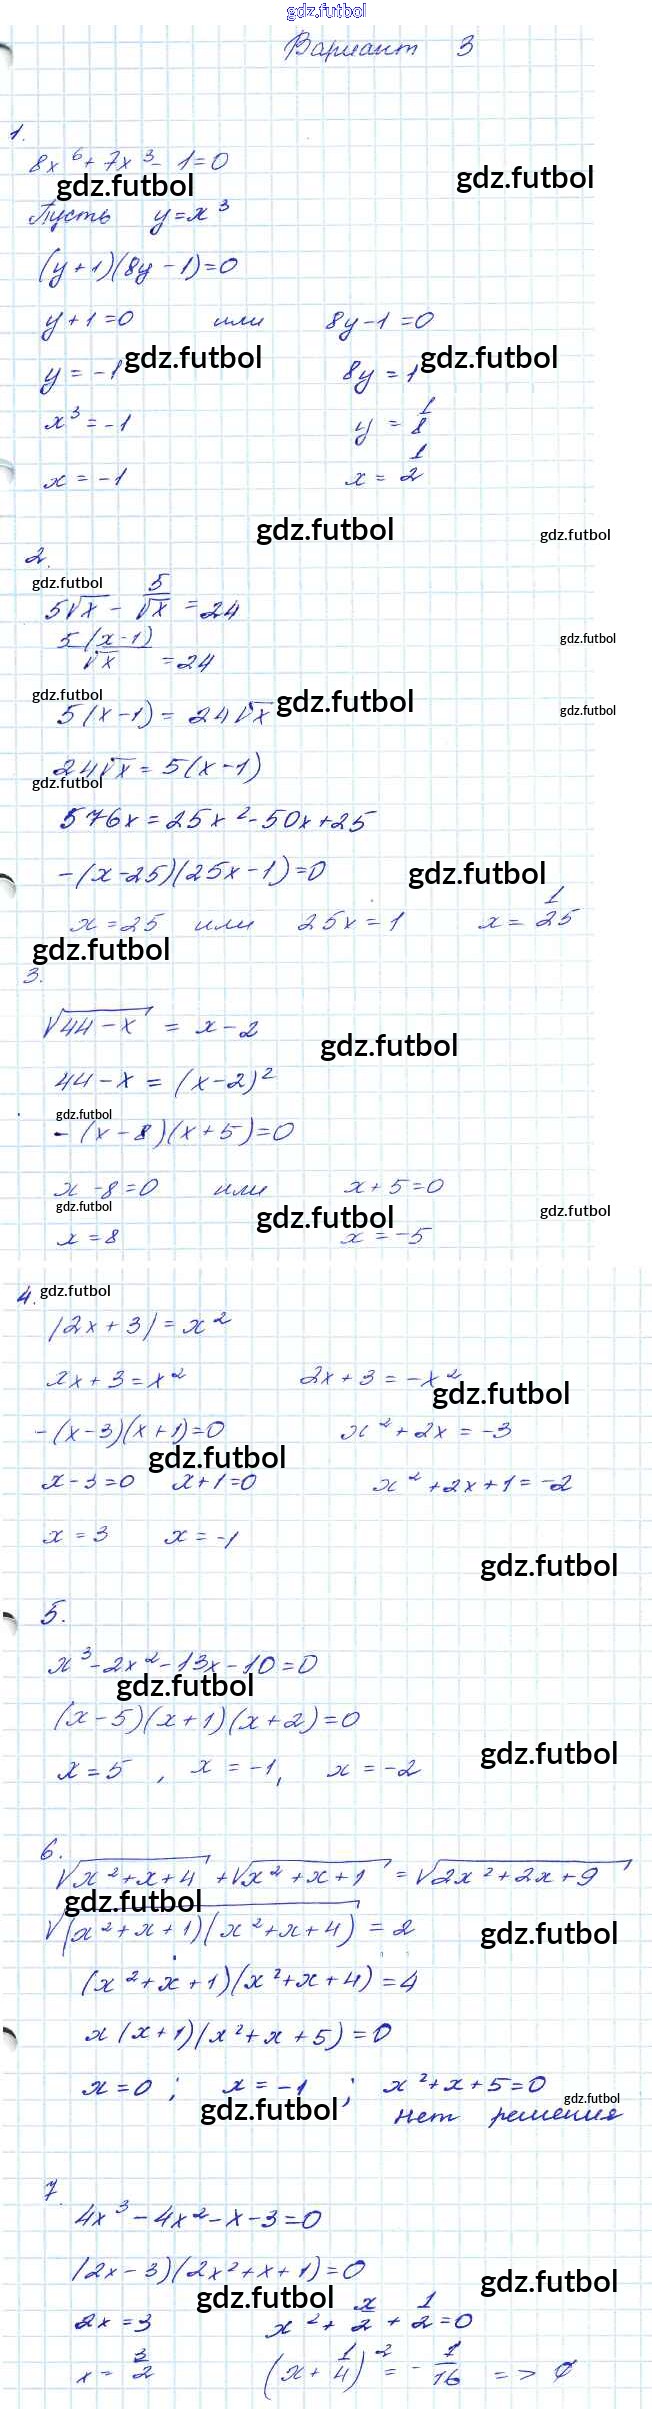 gdz.futbol
Вариант 3
1.
8x⁶ + 7x³ - 1 = 0
gdz.futbol gdz.futbol
Пусть y = x³
(y + 1)(8y - 1) = 0
y + 1 = 0 или 8y - 1 = 0
y = -1 gdz.futbol 8y = 1 gdz.futbol
x³ = -1 y = 1/8
x = -1 x = 1/2
gdz.futbol gdz.futbol
2.
gdz.futbol
5√x - 5/√x = 24
5(x - 1)/√x = 24 gdz.futbol
gdz.futbol gdz.futbol gdz.futbol
5(x - 1) = 24√x
24√x = 5(x - 1)
gdz.futbol
576x = 25x² - 50x + 25
-(x - 25)(25x - 1) = 0 gdz.futbol
x = 25 или 25x = 1 x = 1/25
gdz.futbol
3.
√(44 - x) = x - 2
gdz.futbol
44 - x = (x - 2)²
gdz.futbol
-(x - 8)(x + 5) = 0
x - 8 = 0 или x + 5 = 0
gdz.futbol gdz.futbol gdz.futbol
x = 8 x = -5
4. gdz.futbol
|2x + 3| = x²
xx + 3 = x² 2x + 3 = -x²
gdz.futbol
-(x - 3)(x + 1) = 0 x² + 2x = -3
gdz.futbol
x - 3 = 0 x + 1 = 0 x² + 2x + 1 = -2
x = 3 x = -1
gdz.futbol
5.
x³ - 2x² - 13x - 10 = 0
gdz.futbol
(x - 5)(x + 1)(x + 2) = 0
gdz.futbol
x = 5 , x = -1, x = -2
6.
√(x² + x + 4) + √(x² + x + 1) = √(2x² + 2x + 9)
gdz.futbol
√((x² + x + 1)(x² + x + 4)) = 2 gdz.futbol
(x² + x + 1)(x² + x + 4) = 4
x(x + 1)(x² + x + 5) = 0
x = 0 ; x = -1 ; x² + x + 5 = 0
gdz.futbol gdz.futbol
нет решения
7.
4x³ - 4x² - x - 3 = 0
(2x - 3)(2x² + x + 1) = 0
gdz.futbol gdz.futbol
2x = 3 x² + x/2 + 1/2 = 0
x = 3/2 (x + 1/4)² = -1/16 => ∅